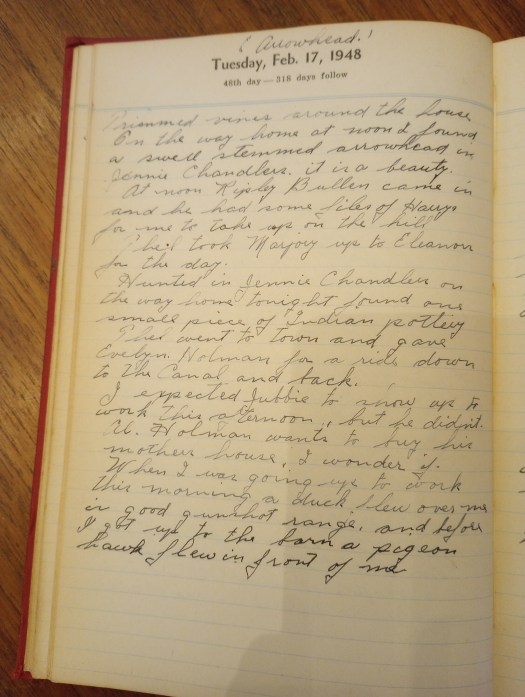 (Arrowhead.)
Tuesday, Feb. 17, 1948
48th day—318 days follow
Trimmed vines around the house
On the way home at noon I found
a swell stemmed arrowhead in
Jennie Chandlers. it is a beauty.
At noon Ripley Bullen came in
and he had some files of Harrys
for me to take up on the hill
took Marjory up to Eleanor
for the day.
Hunted in Jennie Chandlers on
the way home tonight found one
small piece of Indian pottery
went to town and gave
Evelyn Holman for a ride down
to the Canal and back.
I expected Jubbie to show up to
work this afternoon, but he didn't.
Al. Holman wants to buy his
mothers house, I wonder if.
When I was going up to work
this morning a duck flew over me
in good gunshot range, and before
I got up to the barn a pigeon
hawk flew in front of me